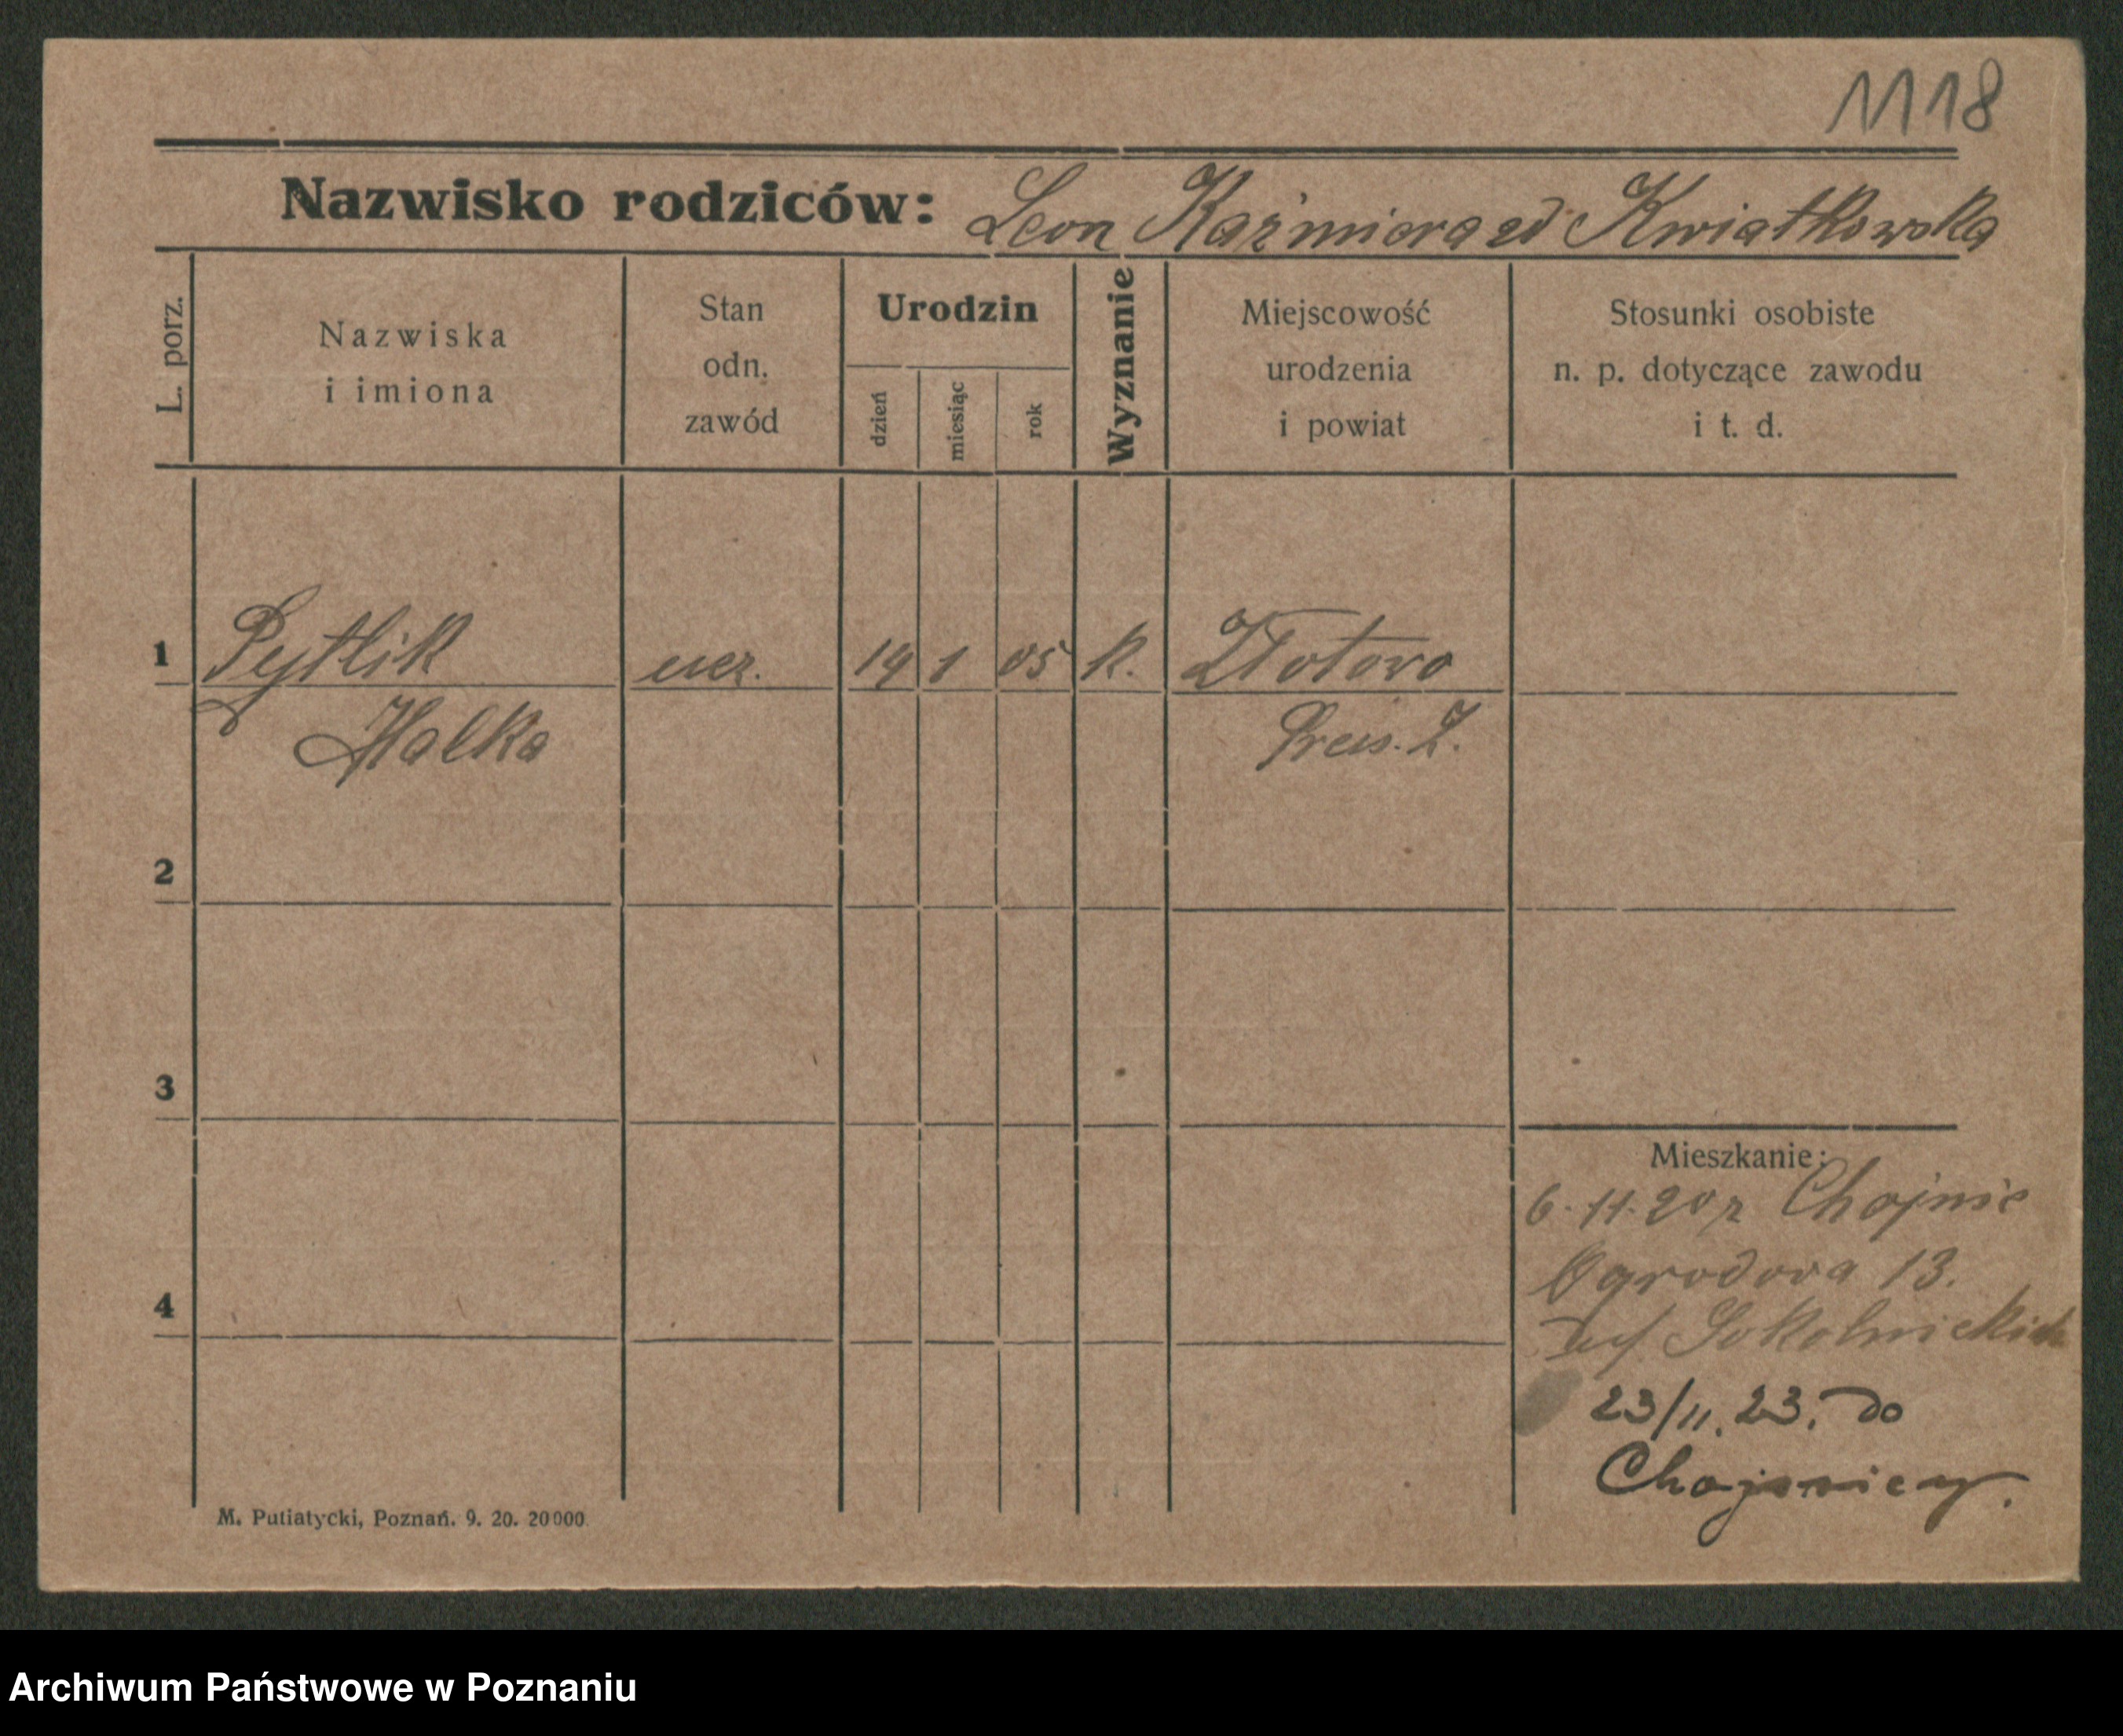 1118
Nazwisko rodziców: Leon Kaźmiera zd Kwiatkowska
L. porz.
Nazwiska
i imiona
Stan
odn.
zawód
Urodzin
dzień
miesiąc
rok
Wyznanie
Miejscowość
urodzenia
i powiat
Stosunki osobiste
n. p. dotyczące zawodu
i t. d.
1 Pytlik ucz. 14 1 05 k. Złotowo
Halka Preus. Z.
2
3
4
Mieszkanie:
6.11.20 z Chojnic
Ogrodowa 13.
Sokolnickich
23/11.23. do
Chojnicy.
M. Putiatycki, Poznań. 9. 20. 20000.
Archiwum Państwowe w Poznaniu